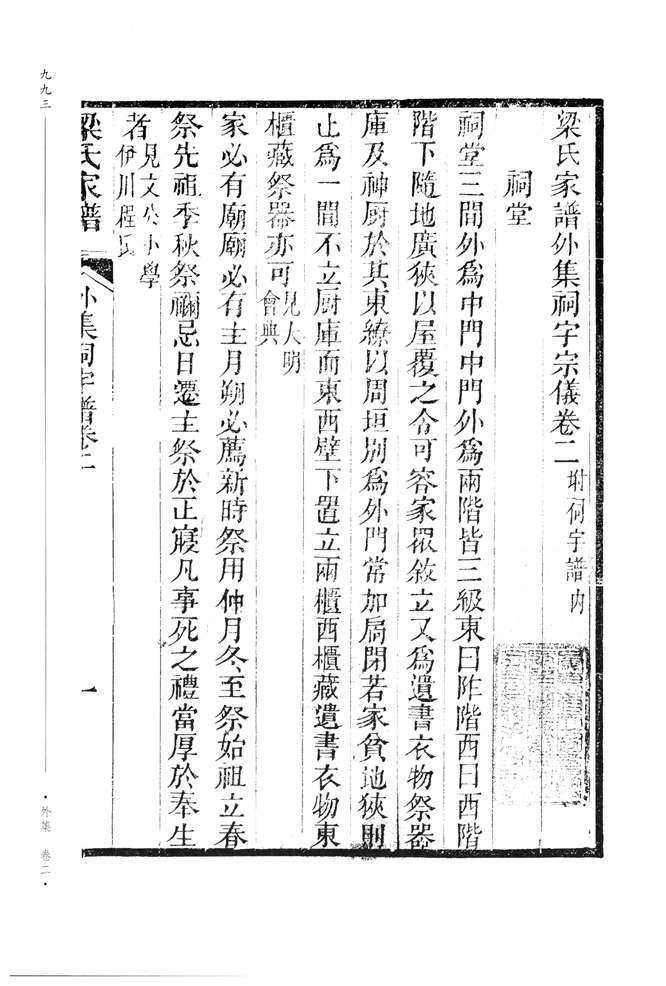 梁氏家譜外集祠宇宗儀卷二 附祠宇譜内
祠堂
祠堂三間外爲中門中門外爲兩階皆三級東曰阼階西曰西階
階下隨地廣狹以屋覆之令可容家眾敘立又爲遺書衣物祭器
庫及神厨於其東繚以周垣別爲外門常加扃閉若家貧地狹則
止爲一間不立厨庫而東西壁下置立兩櫃西櫃藏遺書衣物東
櫃藏祭器亦可 見大明會典
家必有廟廟必有主月朔必薦新時祭用仲月冬至祭始祖立春
祭先祖季秋祭禰忌日遷主祭於正寢凡事死之禮當厚於奉生
者 見文公小學伊川程氏
梁氏家譜 外集祠宇譜卷二 一
九九三
·外集 卷二·